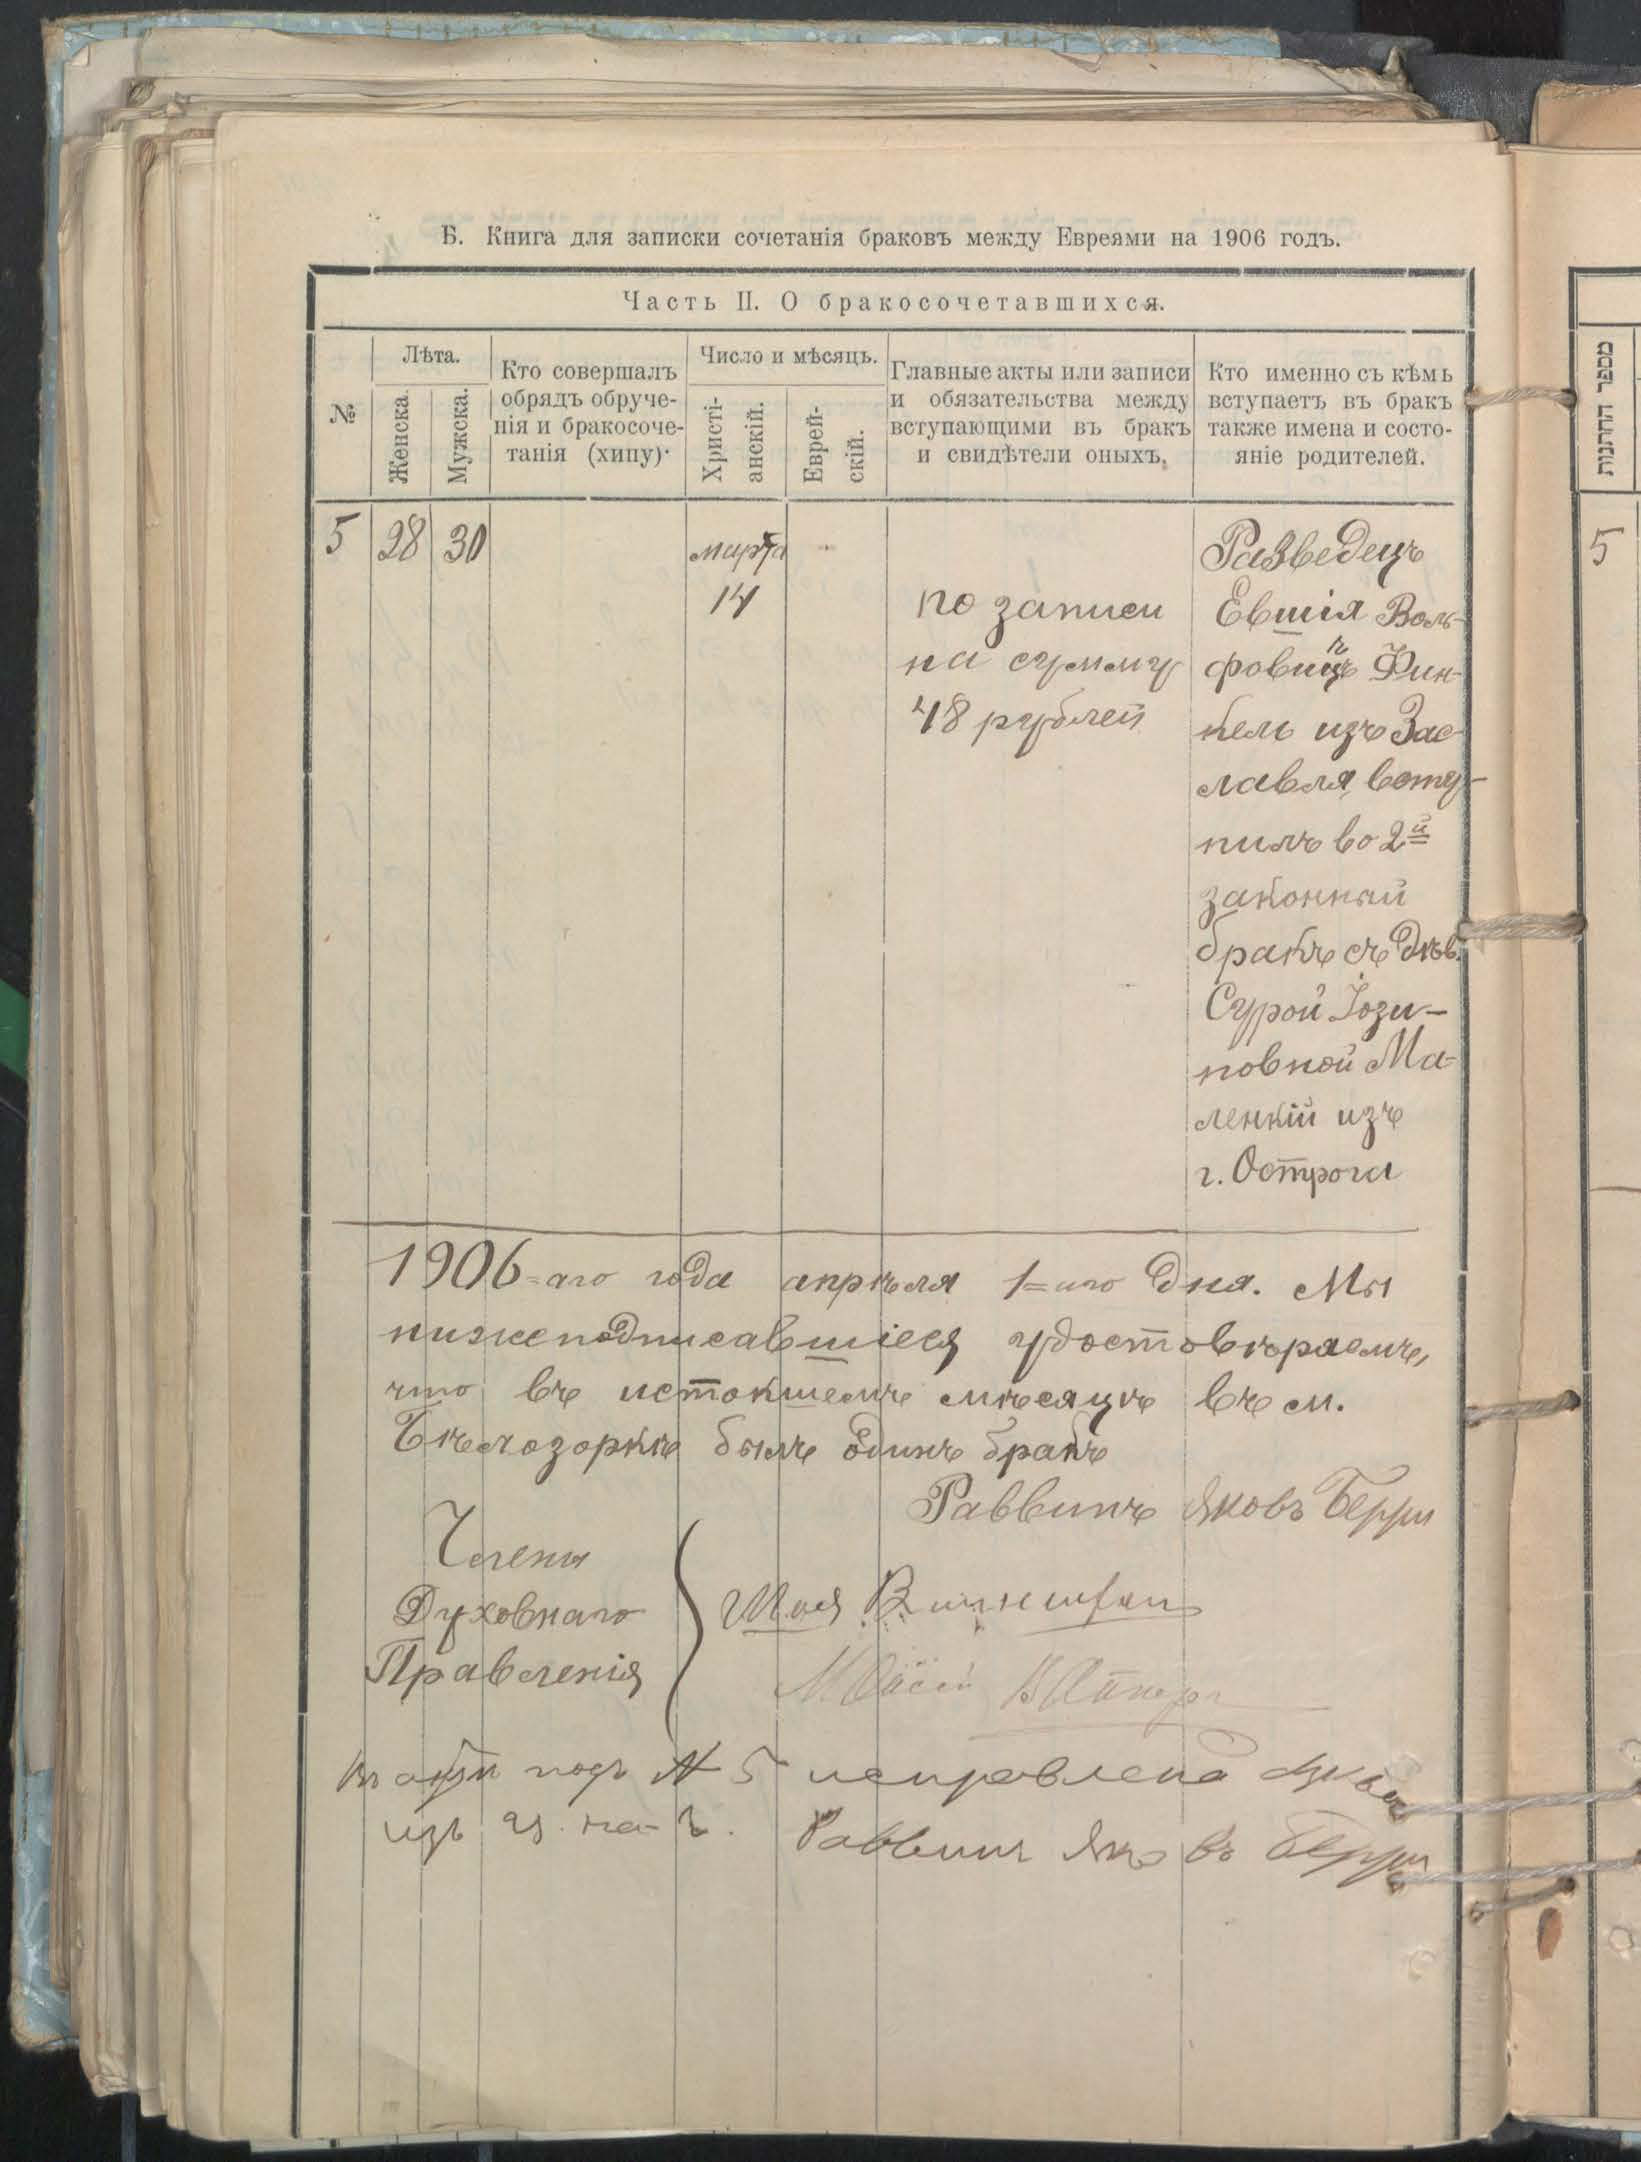 Б. Книга для записки сочетанія браковъ между Евреями на 1906 годъ.
Часть II. О бракосочетавшихся.
№
Лѣта.
Женска.
Мужска.
Кто совершалъ
обрядъ обруче-
нія и бракосоче-
танія (хипу).
Число и мѣсяцъ.
Христі-
анскій.
Еврей-
скій.
Главные акты или записи
и обязательства между
вступающими въ бракъ
и свидѣтели оныхъ.
Кто именно съ кѣмъ
вступаетъ въ бракъ
также имена и состо-
яніе родителей.
5 28 30
марта
14
по записи
на сумму
48 рублей
Разведецъ
Евшія Воль-
фовичъ Фин-
кель изъ Зас-
лавля, всту-
пилъ во 2й
законный
бракъ съ дѣв.
Сурой Іози-
повной Ма-
ленкій изъ
г. Острога
1906=аго года апрѣля 1=аго дня. Мы
нижеподписавшіеся удостовѣряемъ,
что въ истокшемъ мѣсяцѣ въ м.
Бѣлозоркѣ былъ одинъ бракъ
Раввинъ Яковъ Берри
Члены
Духовнаго
Правленія
Шая
въ актѣ подъ № 5 исправлена буква
изъ ц. на ч. Раввинъ Яковъ Берри
מספר החתנות
5